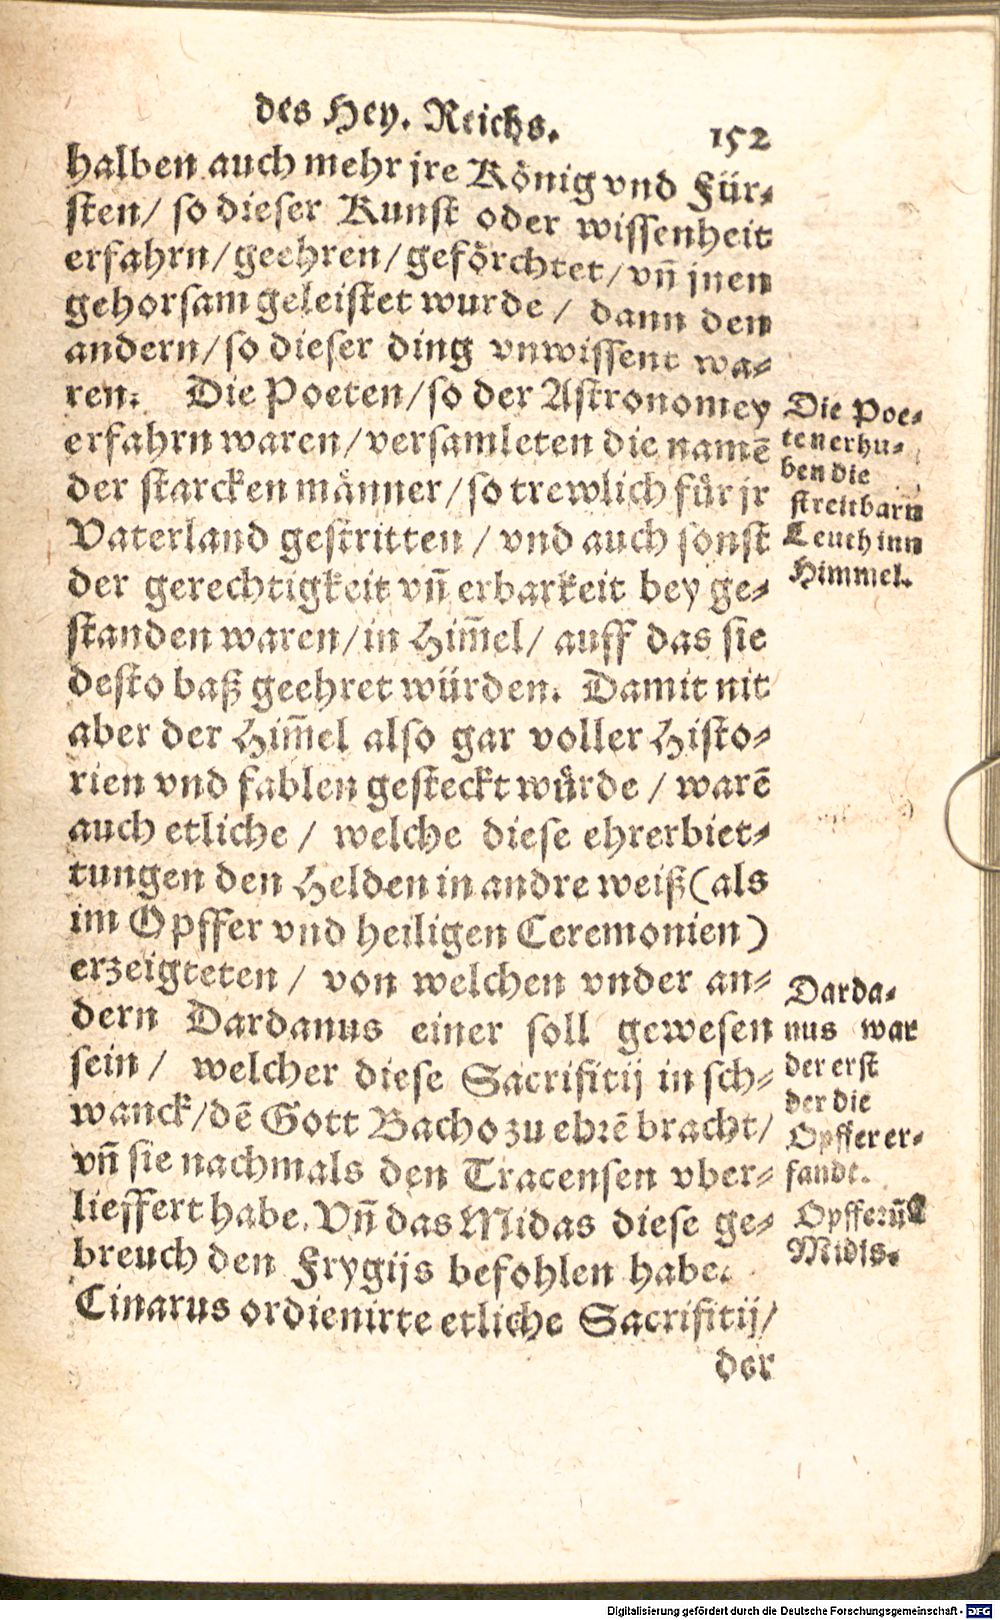 des Hey. Reichs.
152
halben auch mehr jre König vnd Für-
sten/ so dieser Kunst oder wissenheit
erfahrn/geehren/geförchtet/vn̄ jnen
gehorsam geleistet wurde/ dann den
andern/so dieser ding vnwissent wa-
ren. Die Poeten/so der Astronomey
erfahrn waren/versamleten die namē
der starcken männer/so trewlich für jr
Vaterland gestritten/ vnd auch sonst
der gerechtigkeit vn̄ erbarkeit bey ge-
standen waren/in Him̄el/ auff das sie
desto baß geehret würden. Damit nit
aber der Him̄el also gar voller Histo-
rien vnd fablen gesteckt würde/ warē
auch etliche/ welche diese ehrerbiet-
tungen den Helden in andre weiß(als
im Opffer vnd heiligen Ceremonien)
erzeigteten/ von welchen vnder an-
dern Dardanus einer soll gewesen
sein/ welcher diese Sacrifitij in sch-
wanck/dē Gott Bacho zu ehrē bracht/
vn̄ sie nachmals den Tracensen vber-
lieffert habe. Vn̄ das Midas diese ge-
breuch den Frygijs befohlen habe.
Cinarus ordienirte etliche Sacrifitij/
der
Die Poe-
ten erhu-
ben die
streitbarn
Leuth inn
Himmel.
Darda-
nus war
der erst
der die
Opffer er-
fandt.
Midis.
Digitalisierung gefördert durch die Deutsche Forschungsgemeinschaft - DFG